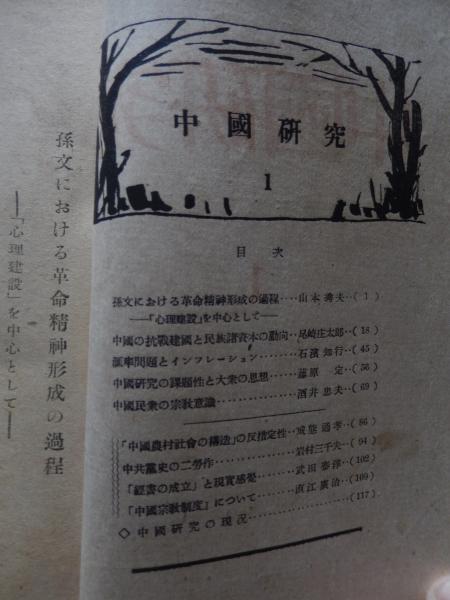 中國硏究
1
目次
孫文における革命精神形成の過程‥‥山本秀夫‥( 1 )
――「心理建設」を中心として――
中國の抗戰建國と民族諸資本の動向‥尾崎庄太郎‥( 18 )
匯率問題とインフレーション‥‥‥‥石濱知行‥( 45 )
中國硏究の課題性と大衆の思想‥‥‥藤原 定‥( 56 )
中國民衆の宗敎意識‥‥‥‥‥‥‥‥酒井忠夫‥( 69 )
「中國農村社會の構造」の反措定性‥戒能通孝‥( 86 )
中共黨史の二勞作‥‥‥‥‥‥‥‥‥岩村三千夫‥( 94 )
「經書の成立」と現實感覺‥‥‥‥‥武田泰淳‥(102)
「中國宗敎制度」について‥‥‥‥‥直江廣治‥(109)
◇中國硏究の現況‥‥‥‥‥‥‥‥‥‥‥‥‥(117)
孫文における革命精神形成の過程
――「心理建設」を中心として――